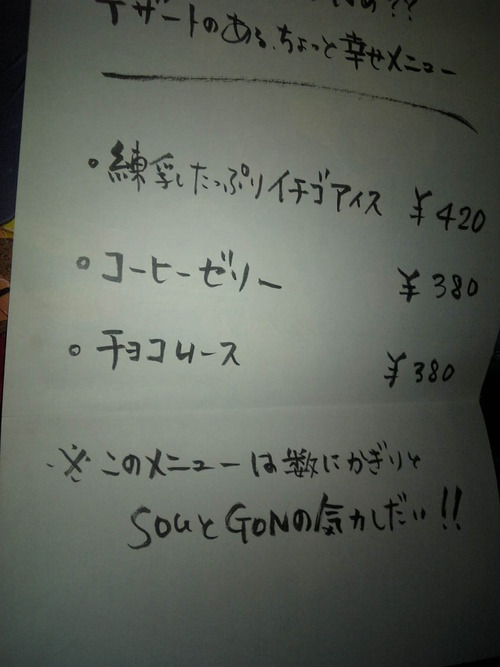 デザートのある、ちょっと幸せメニュー
○ 練乳たっぷりイチゴアイス ¥420
○ コーヒーゼリー ¥380
○ チョコムース ¥380
※ このメニューは数にかぎりと
SOUとGONの気力しだい!!